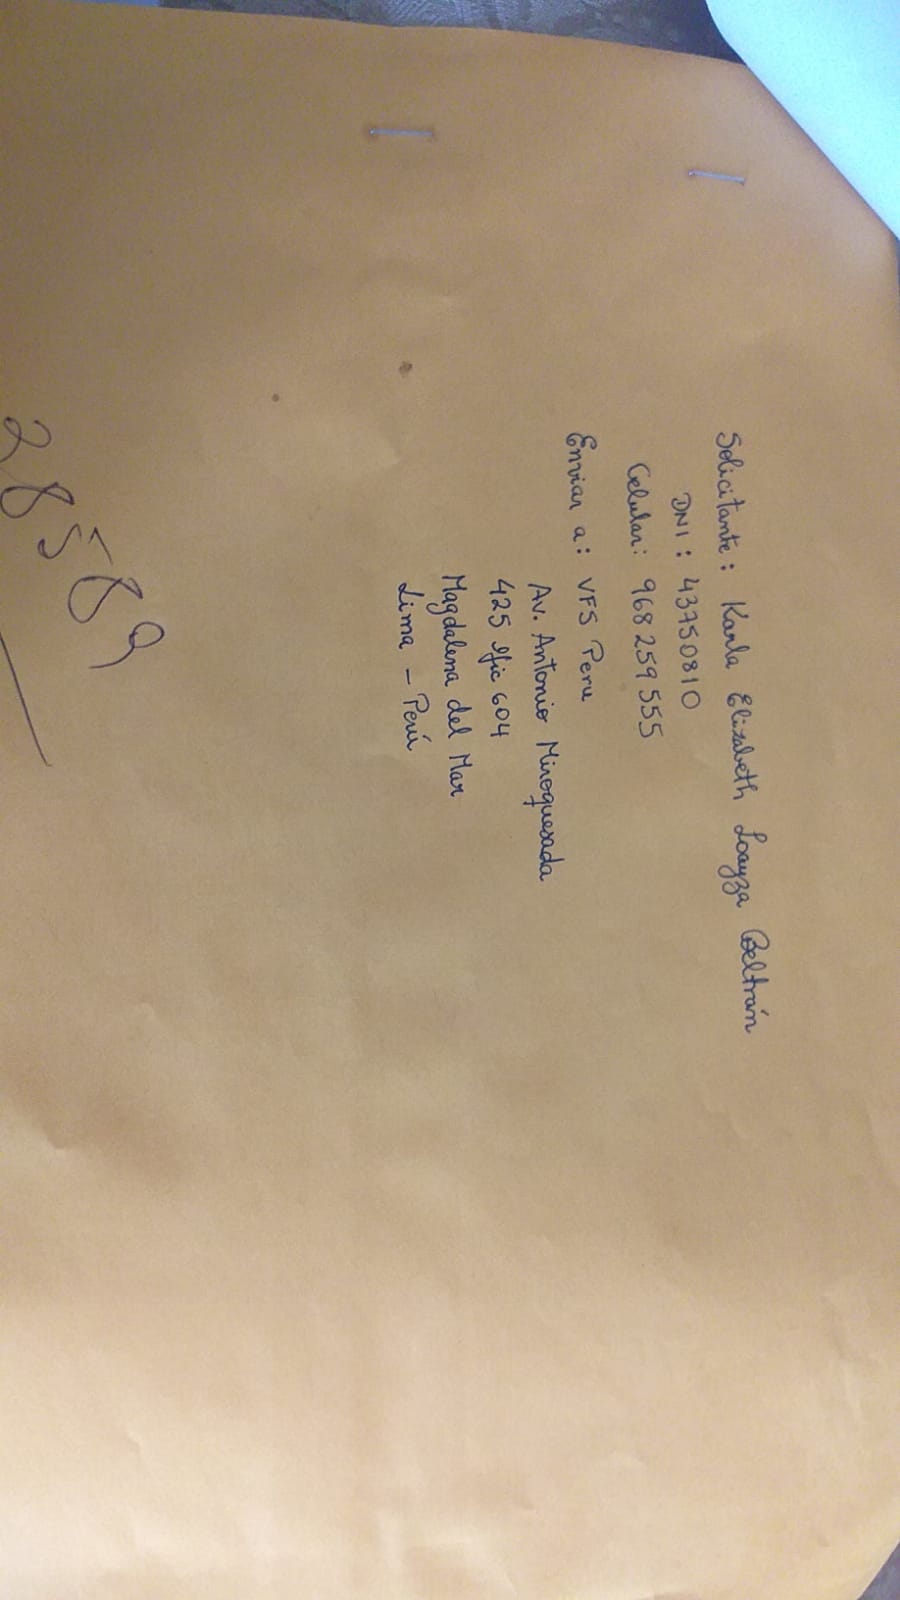 Solicitante: Karla Elizabeth Loayza Beltrán
DNI: 43750810
Celular: 968 259 555
Enviar a: VFS Peru
Av. Antonio Miroquesada
425 Ofic 604
Magdalena del Mar
Lima - Perú
28589